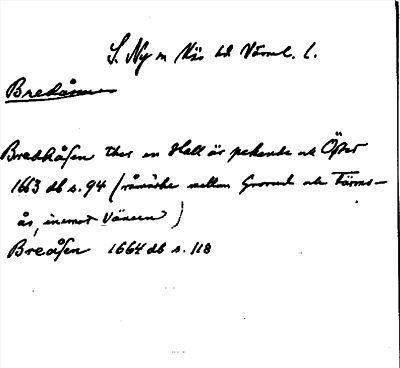 S. Ny m Näs hd Värml. l.
Bredåsen
Bredhåsen ther en Hall är pekande åt Öster
1663 db s. 94 (råmärke mellan Grorud och Tärms-
ås, inemot Vänern)
Breåsen 1664 db s. 118